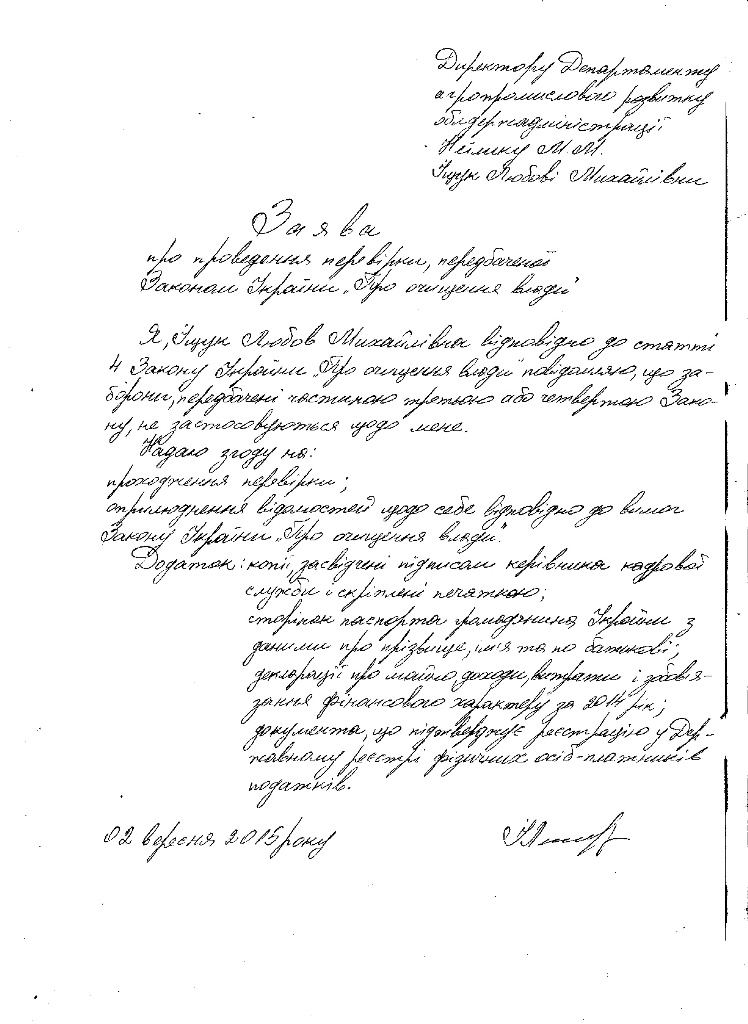 Директору Департаменту
агропромислового розвитку
облдержадміністрації
М М.
Іщук Любові Михайлівни
Заява
про проведення перевірки, передбаченої
Законом України „Про очищення влади"
Я, Іщук Любов Михайлівна відповідно до статті
4 Закону України „Про очищення влади" повідомляю, що за-
борони, передбачені частиною третьою або четвертою Зако-
ну, не застосовуються щодо мене.
Надаю згоду на:
проходження перевірки;
оприлюднення відомостей щодо себе відповідно до вимог
Закону України „Про очищення влади".
Додаток: копії, засвідчені підписом керівника кадрової
служби і скріплені печаткою;
сторінок паспорта громадянина України з
даними про прізвище, ім'я та по батькові;
декларації про майно, доходи, витрати і зобов'я-
зання фінансового характеру за 2014 рік;
документа, що підтверджує реєстрацію у Дер-
жавному реєстрі фізичних осіб-платників
податків.
02 вересня 2015 року